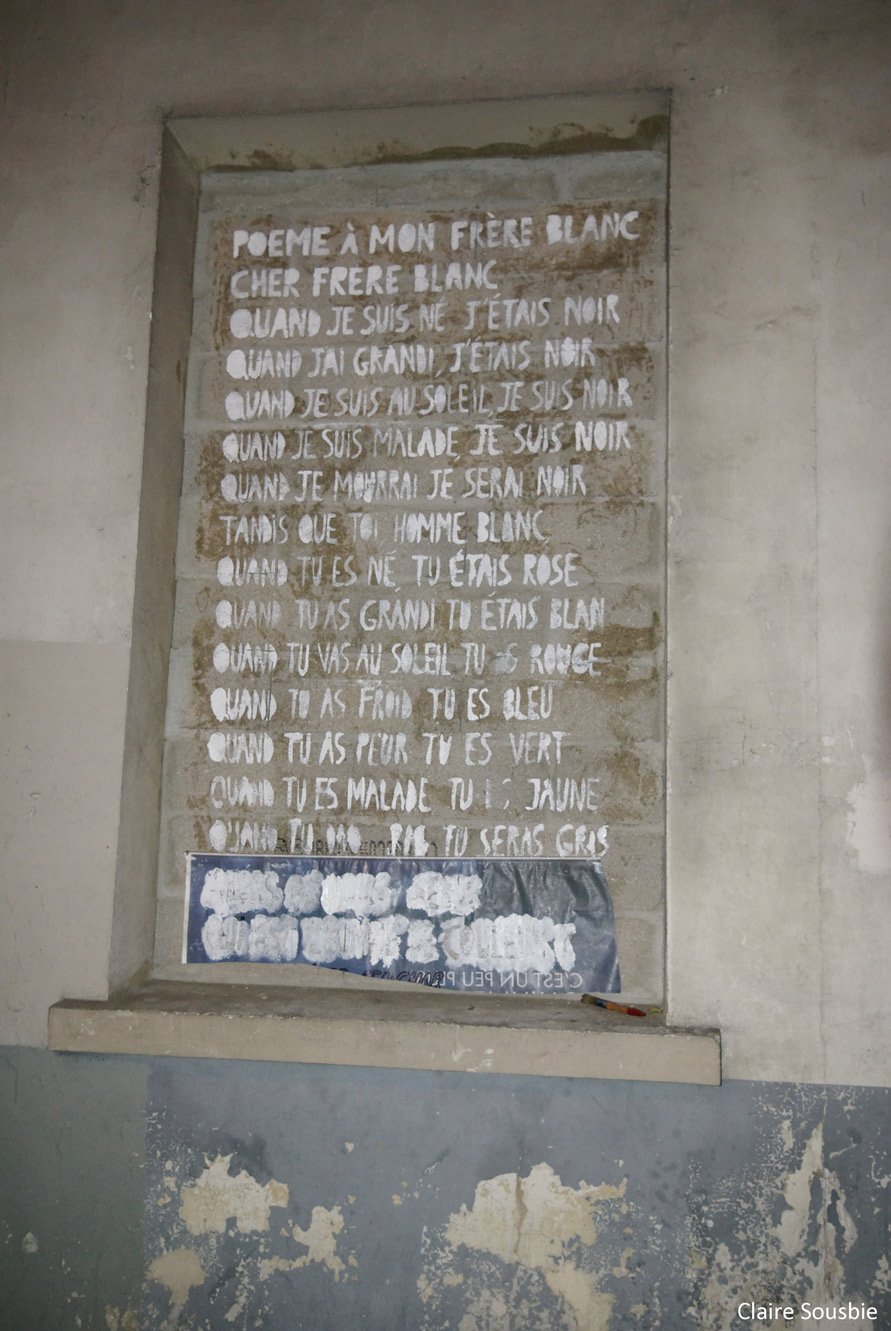 POEME À MON FRÈRE BLANC
CHER FRERE BLANC
QUAND JE SUIS NÉ J'ÉTAIS NOIR
QUAND JAI GRANDI, J'ÉTAIS NOIR
QUAND JE SUIS AU SOLEIL, JE SUIS NOIR
QUAND JE SUIS MALADE, JE SUIS NOIR
QUAND JE MOURRAI JE SERAI NOIR
TANDIS QUE TOI HOMME BLANC
QUAND TU ES NÉ, TU ÉTAIS ROSE
QUAND TU AS GRANDI TU ÉTAIS BLAN
QUAND TU VAS AU SOLEIL TU ROUGE
QUAND TU AS FROID TU ES BLEU
QUAND TU AS PEUR TU ES VERT
QUAND TU ES MALADE TU JAUNE
QUAND TU TU SERAS GRIS
C'EST UN PEU PL
Claire Sousbie